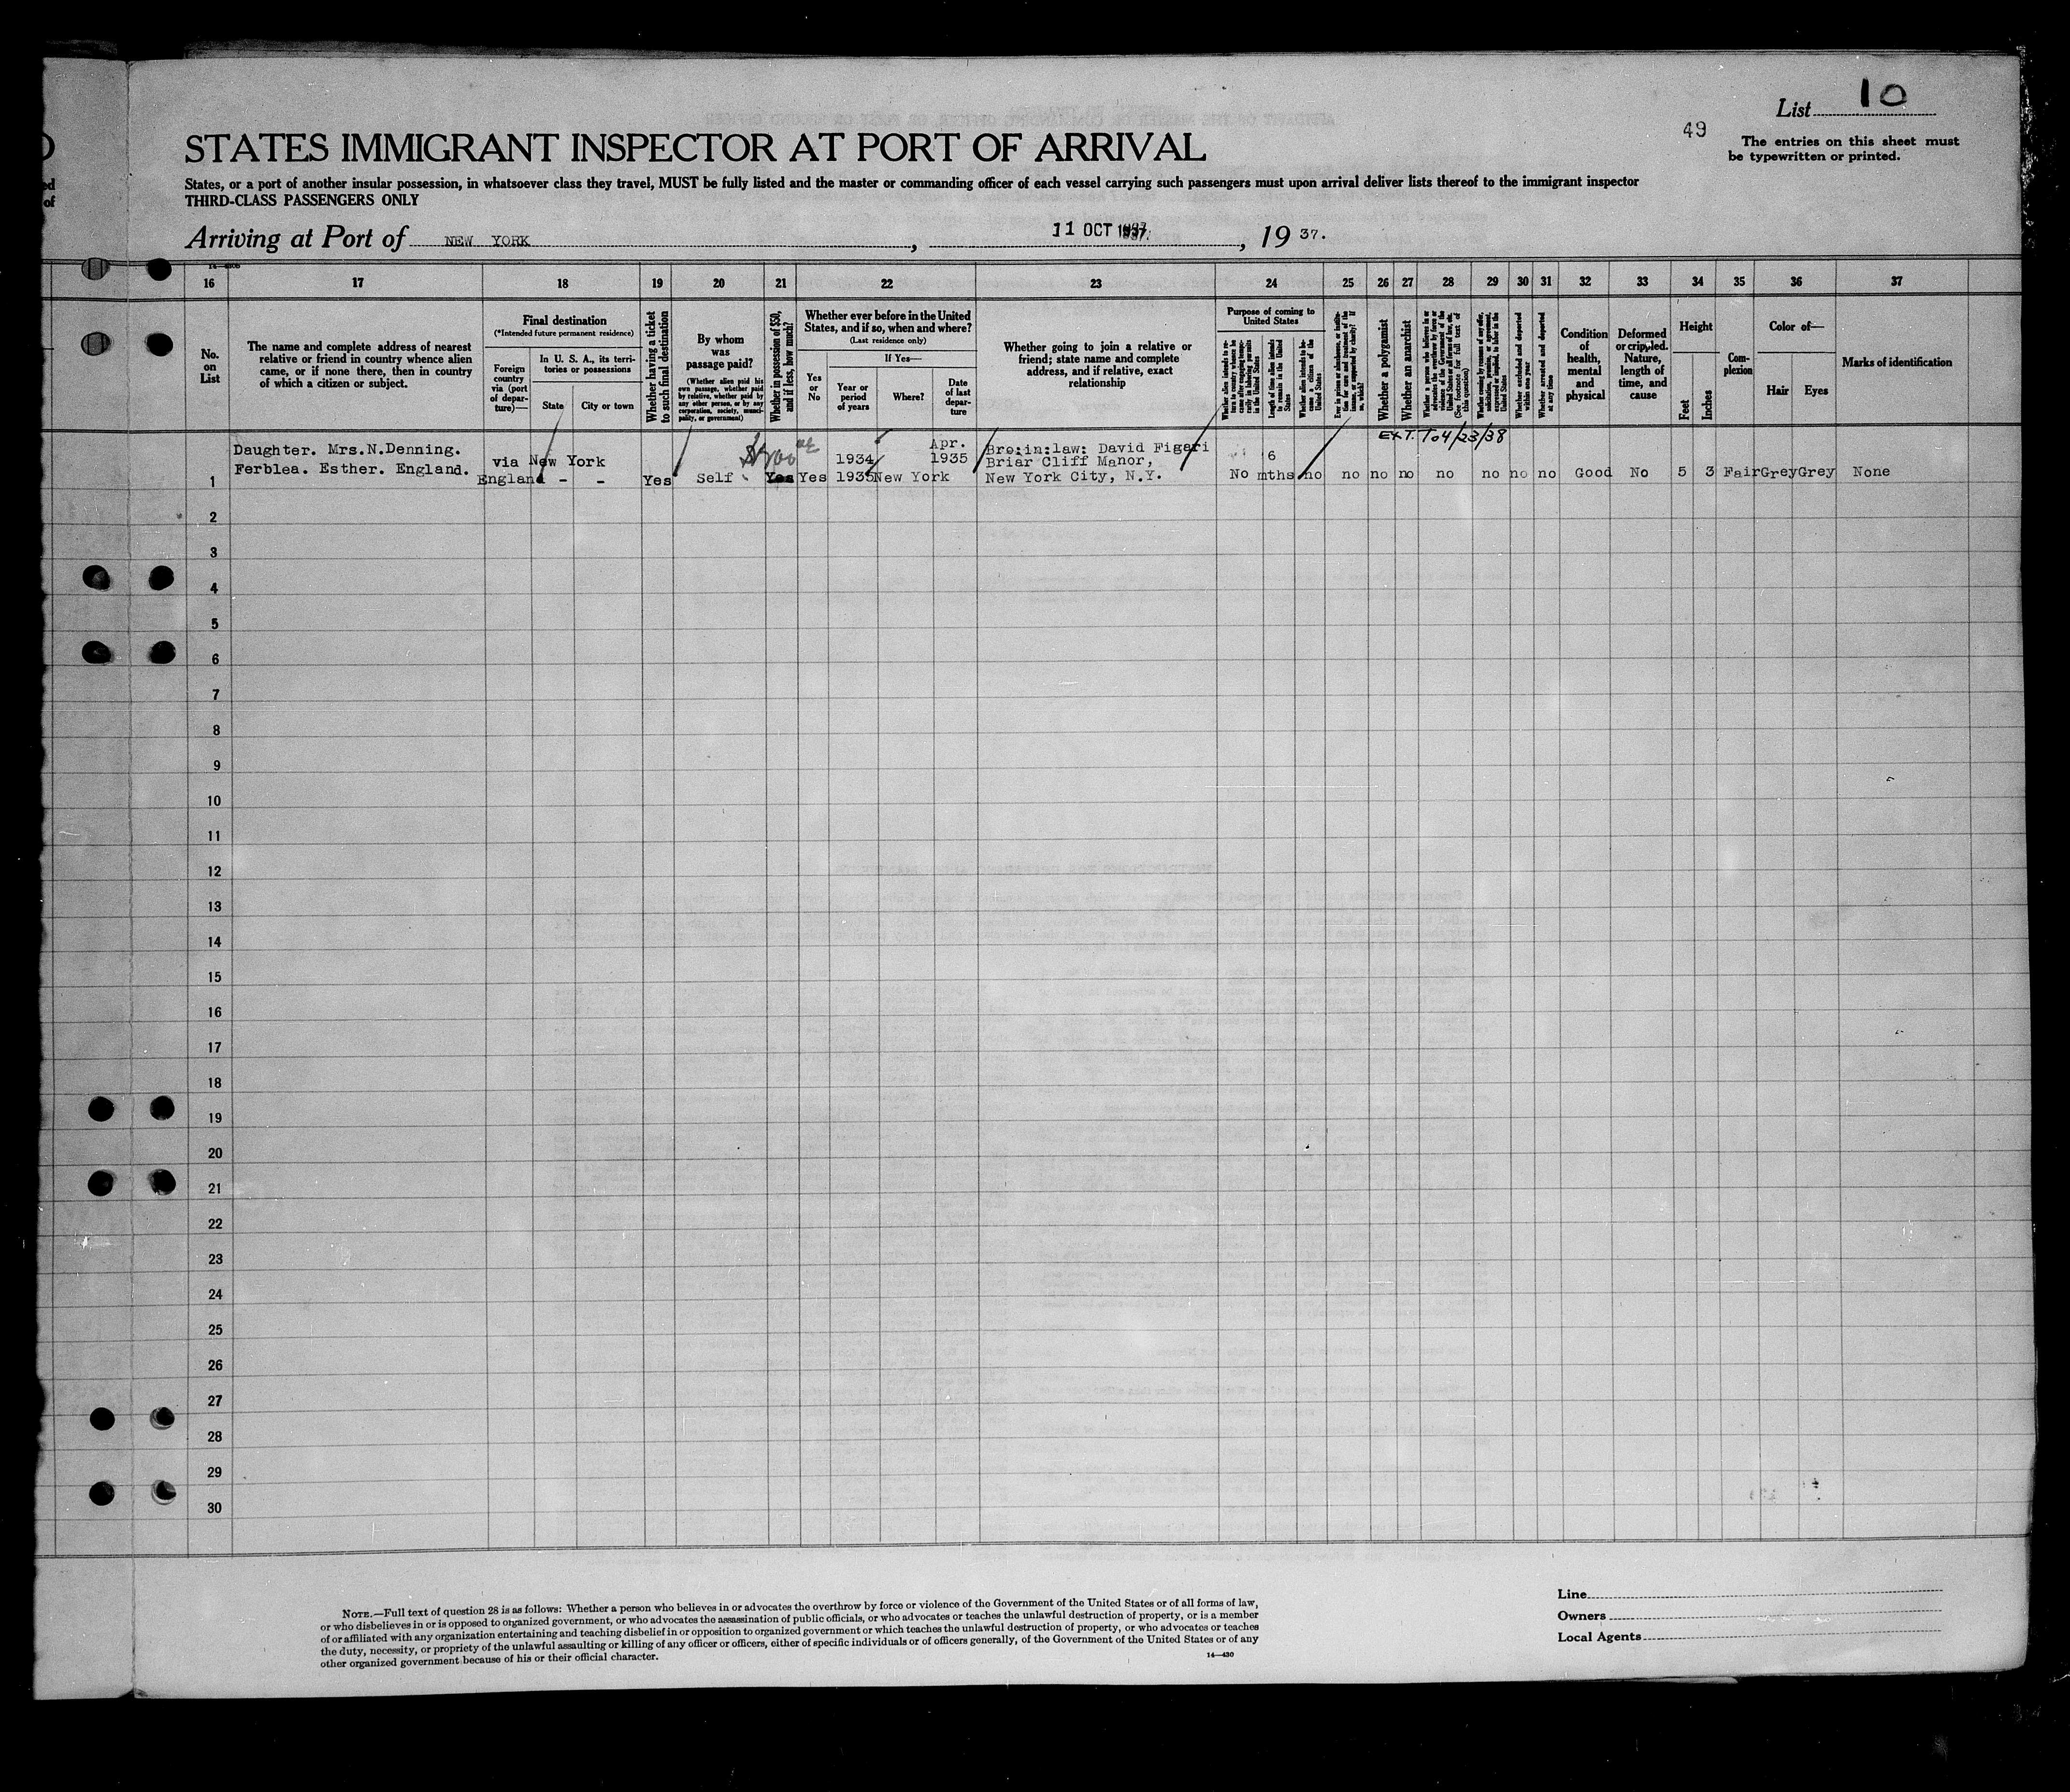 List 10
49
The entries on this sheet must
be typewritten or printed.
STATES IMMIGRANT INSPECTOR AT PORT OF ARRIVAL
States, or a port of another insular possession, in whatsoever class they travel, MUST be fully listed and the master or commanding officer of each vessel carrying such passengers must upon arrival deliver lists thereof to the immigrant inspector
THIRD-CLASS PASSENGERS ONLY
Arriving at Port of NEW YORK, 11 OCT 1937, 19 37.
16 17 18 19 20 21 22 23 24 25 26 27 28 29 30 31 32 33 34 35 36 37
No.
on
List
The name and complete address of nearest
relative or friend in country whence alien
came, or if none there, then in country
of which a citizen or subject.
Final destination
(*Intended future permanent residence)
Foreign
country
via (port
of depar-
ture)—
In U. S. A., its terri-
tories or possessions
State
City or town
Whether having a ticket
to such final destination
By whom
was
passage paid?
(Whether alien paid his
own passage, whether paid
by relative, whether paid by
any other person, or by any
corporation, society, munici-
pality, or government)
Whether in possession of $50,
and if less, how much?
Whether ever before in the United
States, and if so, when and where?
(Last residence only)
Yes
or
No
If Yes—
Year or
period
of years
Where?
Date
of last
depar-
ture
Whether going to join a relative or
friend; state name and complete
address, and if relative, exact
relationship
Purpose of coming to
United States
Length of time alien intends
to remain in the United
States
Whether alien intends to be-
come a citizen of the
United States
Whether a polygamist
Whether an anarchist
Whether excluded and deported
within one year
Whether arrested and deported
at any time
Condition
of
health,
mental
and
physical
Deformed
or crippled.
Nature,
length of
time, and
cause
Height
Feet
Inches
Com-
plexion
Color of—
Hair
Eyes
Marks of identification
EXT. To 4/23/38
Daughter. Mrs.N.Denning.
Ferblea. Esther. England.
1
via New York
England - -
Yes
Self
Yes
Yes
1934
1935
New York
Apr.
1935
Bro:in:law: David Figari
Briar Cliff Manor,
New York City, N.Y.
No
6
mths
no no no no no no no no Good No 5 3 Fair Grey Grey None
2
3
4
5
6
7
8
9
10
11
12
13
14
15
16
17
18
19
20
21
22
23
24
25
26
27
28
29
30
NOTE.—Full text of question 28 is as follows: Whether a person who believes in or advocates the overthrow by force or violence of the Government of the United States or of all forms of law,
or who disbelieves in or is opposed to organized government, or who advocates the assassination of public officials, or who advocates or teaches the unlawful destruction of property, or is a member
of or affiliated with any organization entertaining and teaching disbelief in or opposition to organized government or which teaches the unlawful destruction of property, or who advocates or teaches
the duty, necessity, or propriety of the unlawful assaulting or killing of any officer or officers, either of specific individuals or of officers generally, of the Government of the United States or of any
other organized government because of his or their official character.
14—430
Line
Owners
Local Agents